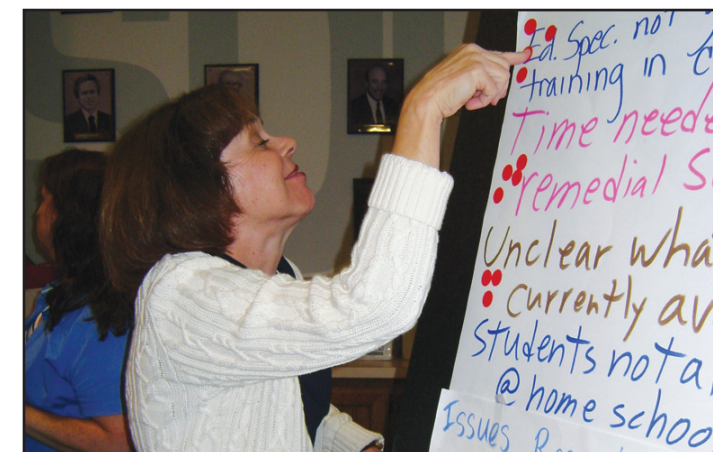 Ed. Spec. not
training in
Time neede
remedial S
Unclear wha
currently av
Students not a
@ home schoo
Issues